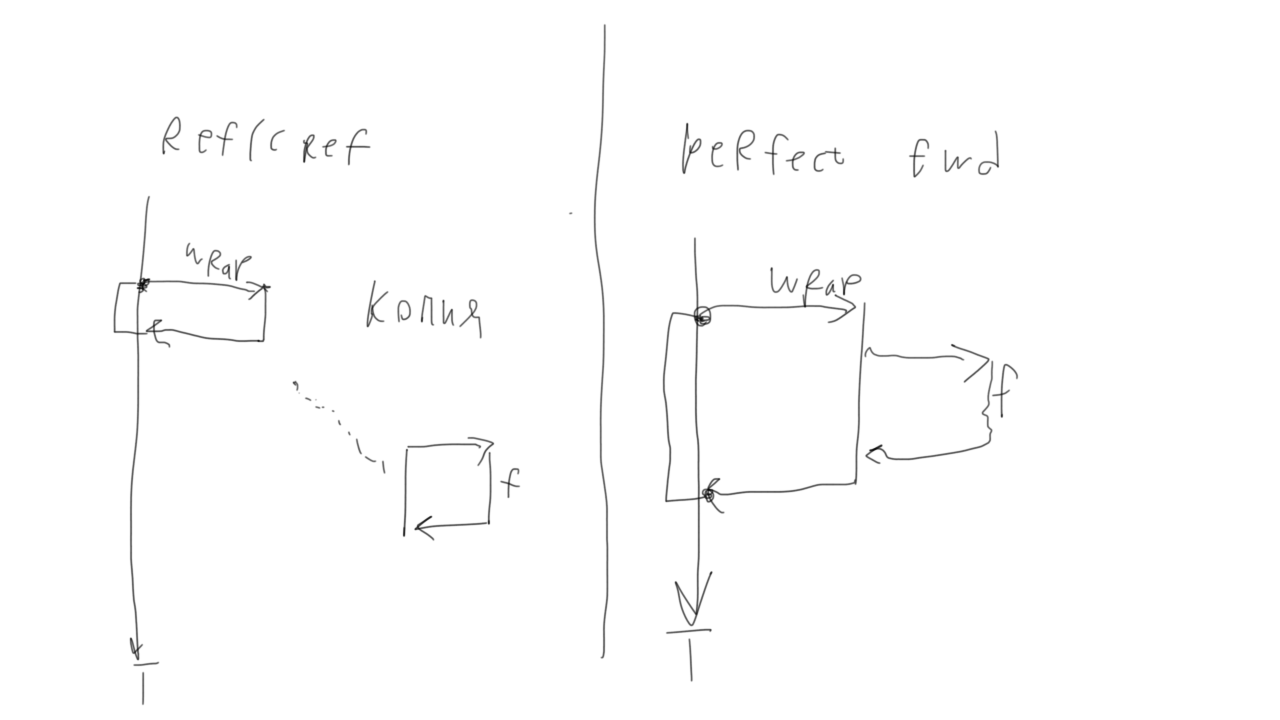 Ref/cRef
wRap
Копия
f
T
perfect fwd
wRap
f
T